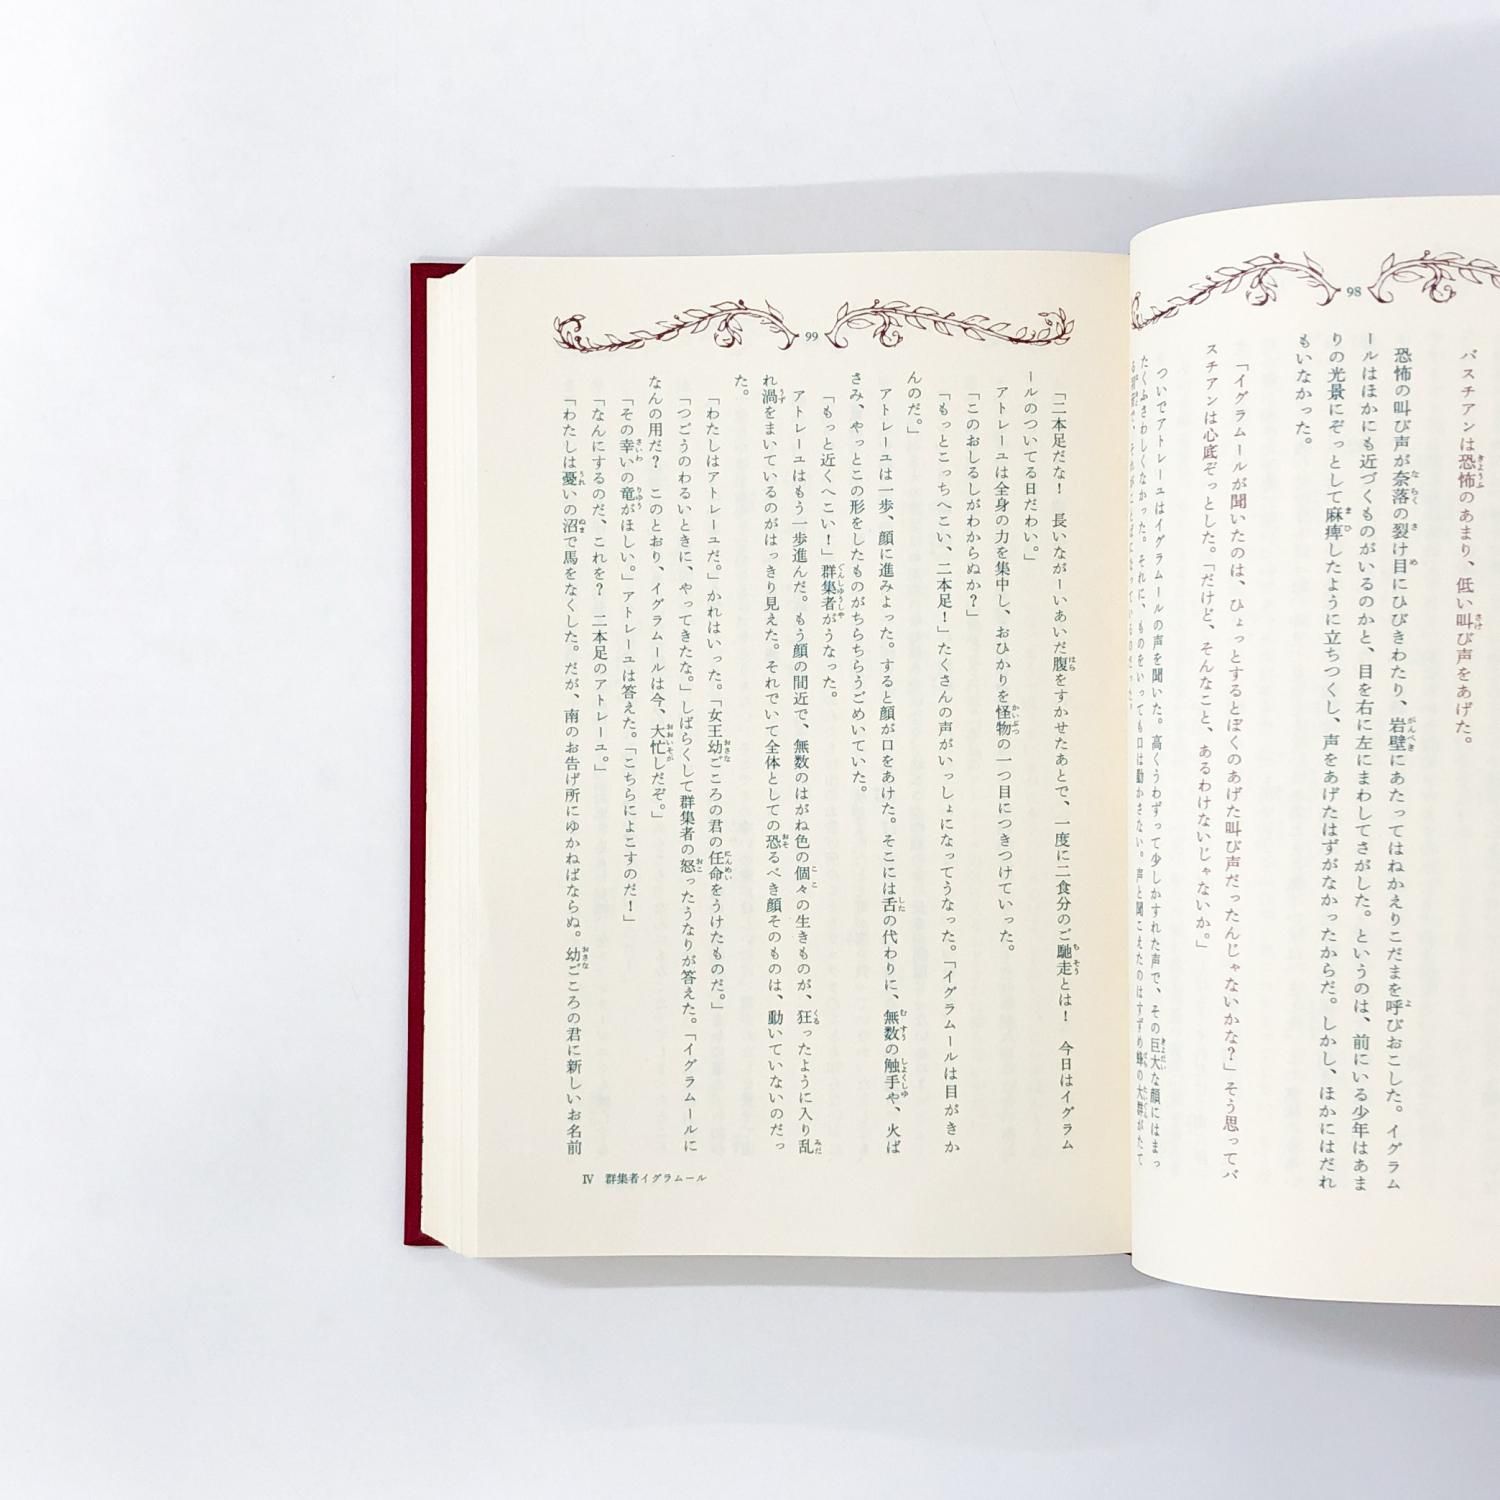 98
バスチアンは恐怖のあまり、低い叫び声をあげた。
恐怖の叫び声が奈落の裂け目にひびきわたり、岩壁にあたってはねかえりこだまを呼びおこした。イグラム
ールはほかにも近づくものがいるのかと、目を右に左にまわしてさがした。というのは、前にいる少年はあま
りの光景にぞっとして麻痺したように立ちつくし、声をあげたはずがなかったからだ。しかし、ほかにはだれ
もいなかった。
「イグラムールが聞いたのは、ひょっとするとぼくのあげた叫び声だったんじゃないかな？」そう思ってバ
スチアンは心底ぞっとした。「だけど、そんなこと、あるわけないじゃないか。」
ついでアトレーユはイグラムールの声を聞いた。高くうわずって少しかすれた声で、その巨大な顔にはまっ
たくふさわしくなかった。それに、ものをいっても口は動かさない。声と聞こえたのはすずめ蜂の大群がたて
99
「二本足だな！　長いながーいあいだ腹をすかせたあとで、一度に二食分のご馳走とは！　今日はイグラム
ールのついてる日だわい。」
アトレーユは全身の力を集中し、おひかりを怪物の一つ目につきつけていった。
「このおしるしがわからぬか？」
「もっとこっちへこい、二本足！」たくさんの声がいっしょになってうなった。「イグラムールは目がきか
んのだ。」
アトレーユは一歩、顔に進みよった。すると顔が口をあけた。そこには舌の代わりに、無数の触手や、火ば
さみ、やっとこの形をしたものがちらちらうごめいていた。
「もっと近くへこい！」群集者がうなった。
アトレーユはもう一歩進んだ。もう顔の間近で、無数のはがね色の個々の生きものが、狂ったように入り乱
れ渦をまいているのがはっきり見えた。それでいて全体としての恐るべき顔そのものは、動いていないのだっ
た。
「わたしはアトレーユだ。」かれはいった。「女王幼ごころの君の任命をうけたものだ。」
「つごうのわるいときに、やってきたな。」しばらくして群集者の怒ったうなりが答えた。「イグラムールに
なんの用だ？　このとおり、イグラムールは今、大忙しだぞ。」
「その幸いの竜がほしい。」アトレーユは答えた。「こちらによこすのだ！」
「なんにするのだ、これを？　二本足のアトレーユ。」
「わたしは憂いの沼で馬をなくした。だが、南のお告げ所にゆかねばならぬ。幼ごころの君に新しいお名前
Ⅳ　群集者イグラムール